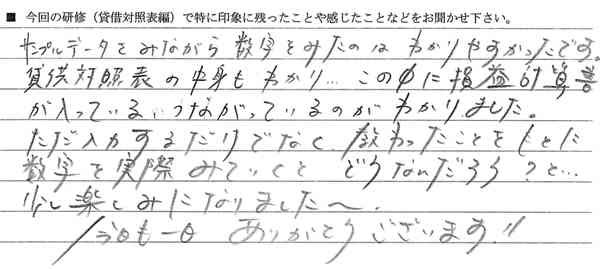 ■ 今回の研修（貸借対照表編）で特に印象に残ったことや感じたことなどをお聞かせ下さい。
サンプルデータをみながら数字をみたのはわかりやすかったです。
貸借対照表の中身もわかり…この中に損益計算書
が入っている、つながっているのがわかりました。
ただ入力するだけでなく、教わったことをもとに
数字を実際みていくとどうなんだろう？と…
少し楽しみになりました〜。
今日も一日ありがとうございます!!